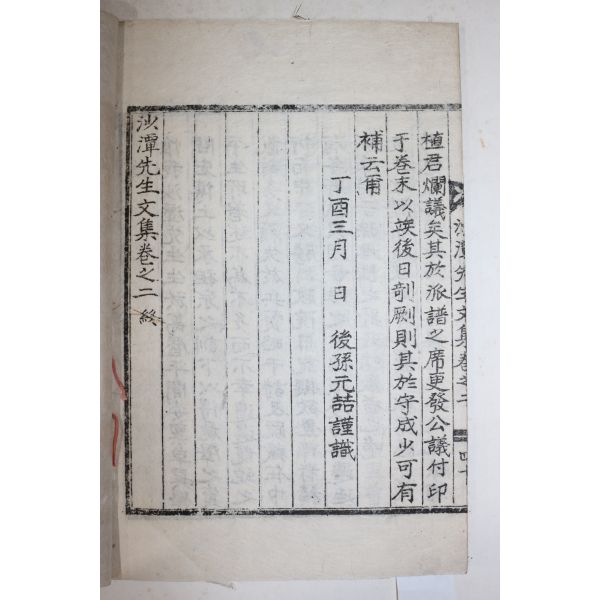 沙潭先生文集卷之二
植君爛議矣其於派譜之席更發公議付印
于卷末以竢後日剞劂則其於守成少可有
補云爾
丁酉三月 日 後孫元喆謹識
沙潭先生文集卷之二 終